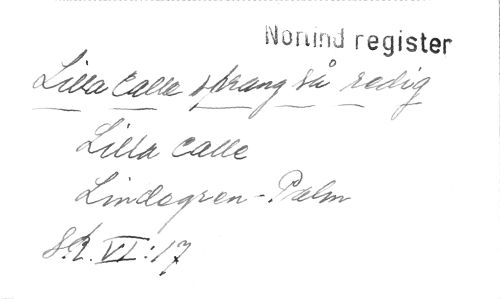 Norlind register
Lilla Calle sprang så redig
Lilla Calle
Lindagren-Palm
VI:17